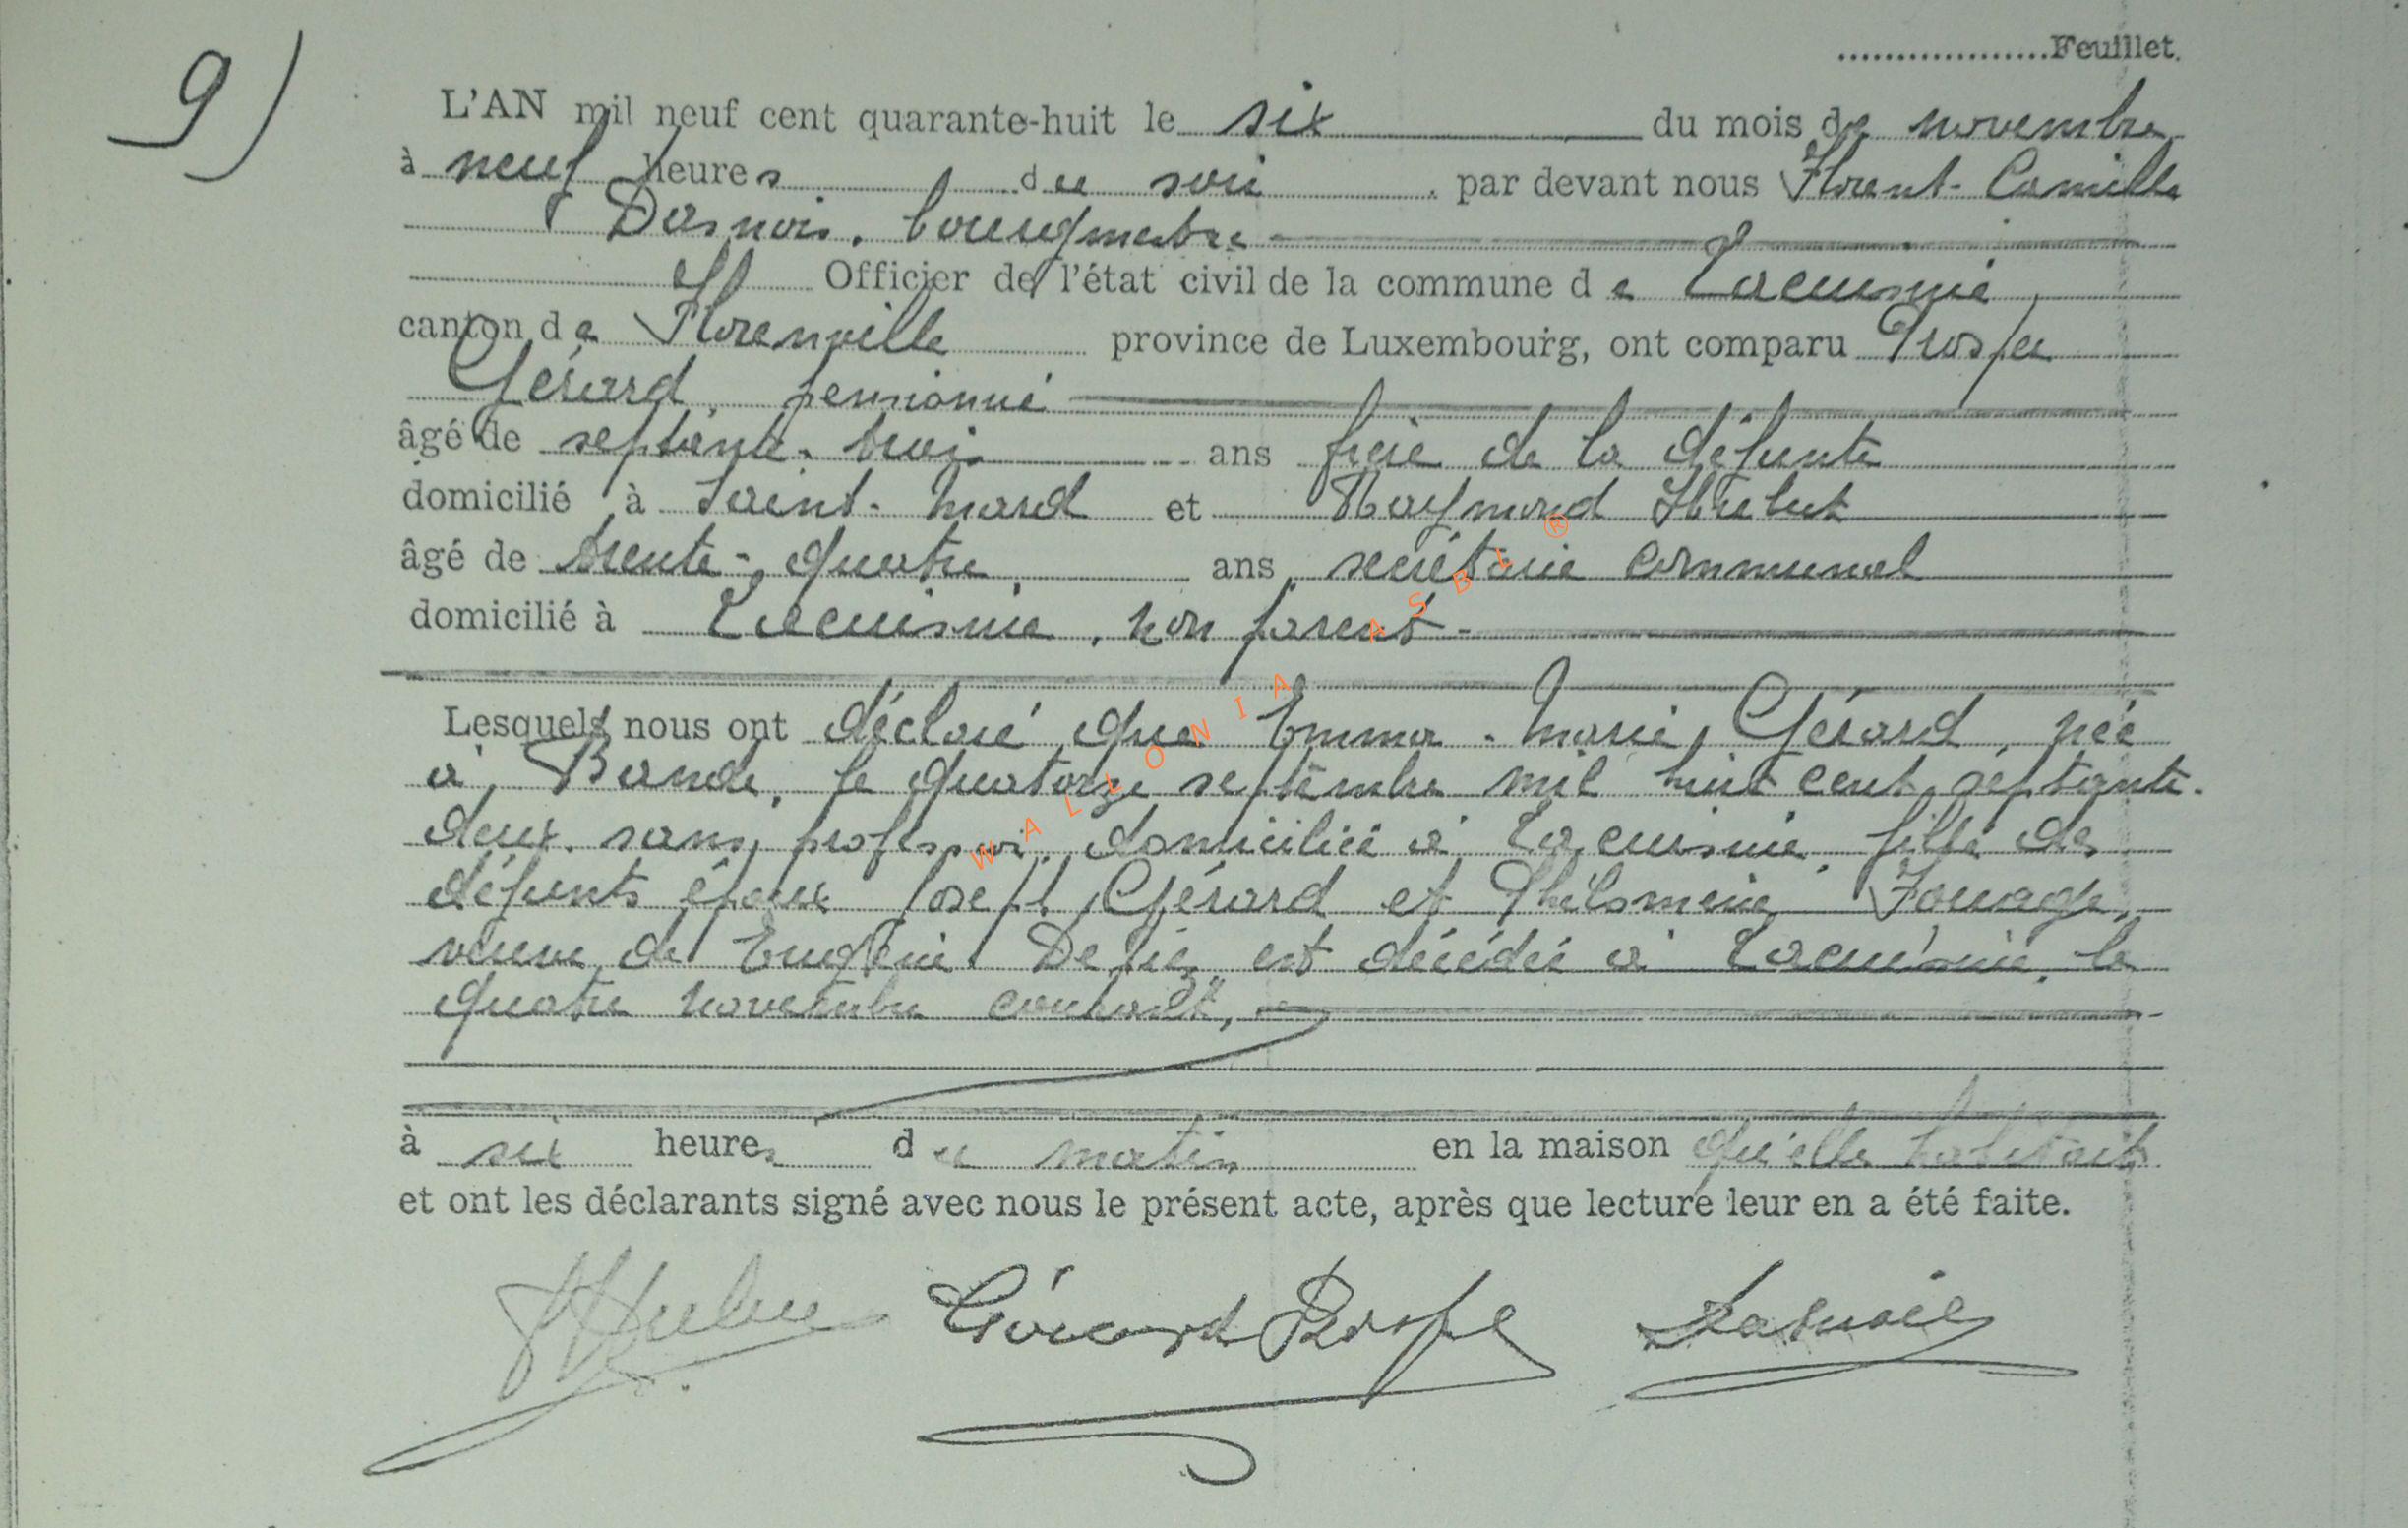 9)
...................Feuillet.
L'AN mil neuf cent quarante-huit le six du mois de novembre
à neuf heures du soir par devant nous Florent-Camille
Dasnois, bourgmestre
Officier de l'état civil de la commune de Lacuisine,
canton de Florenville province de Luxembourg, ont comparu Prosper
Gérard, pensionné
âgé de septante-trois ans frère de la défunte
domicilié à Saint-Mard et Raymond Hubert
âgé de trente-quatre ans, secrétaire communal
domicilié à Lacuisine, non parent
Lesquels nous ont déclaré que Emma-Marie Gérard, née
à Bande, le quatorze septembre mil huit cent septante-
deux, sans profession, domiciliée à Lacuisine, fille des
défunts époux Joseph Gérard et Philomène
veuve de Eugène est décédée à Lacuisine, le
quatre novembre courant,
à six heures du matin en la maison qu'elle habitait
et ont les déclarants signé avec nous le présent acte, après que lecture leur en a été faite.
Gérard Prosper Dasnois
WALLONIA ASBL ®